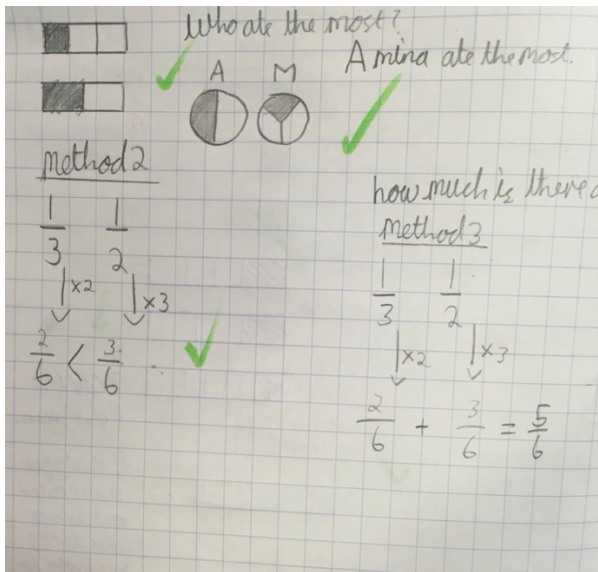 Who ate the most?
A M
Amina ate the most.
method 2
1/3 1/2
×2 ×3
2/6 < 3/6
how much is there
method 3
1/3 1/2
×2 ×3
2/6 + 3/6 = 5/6